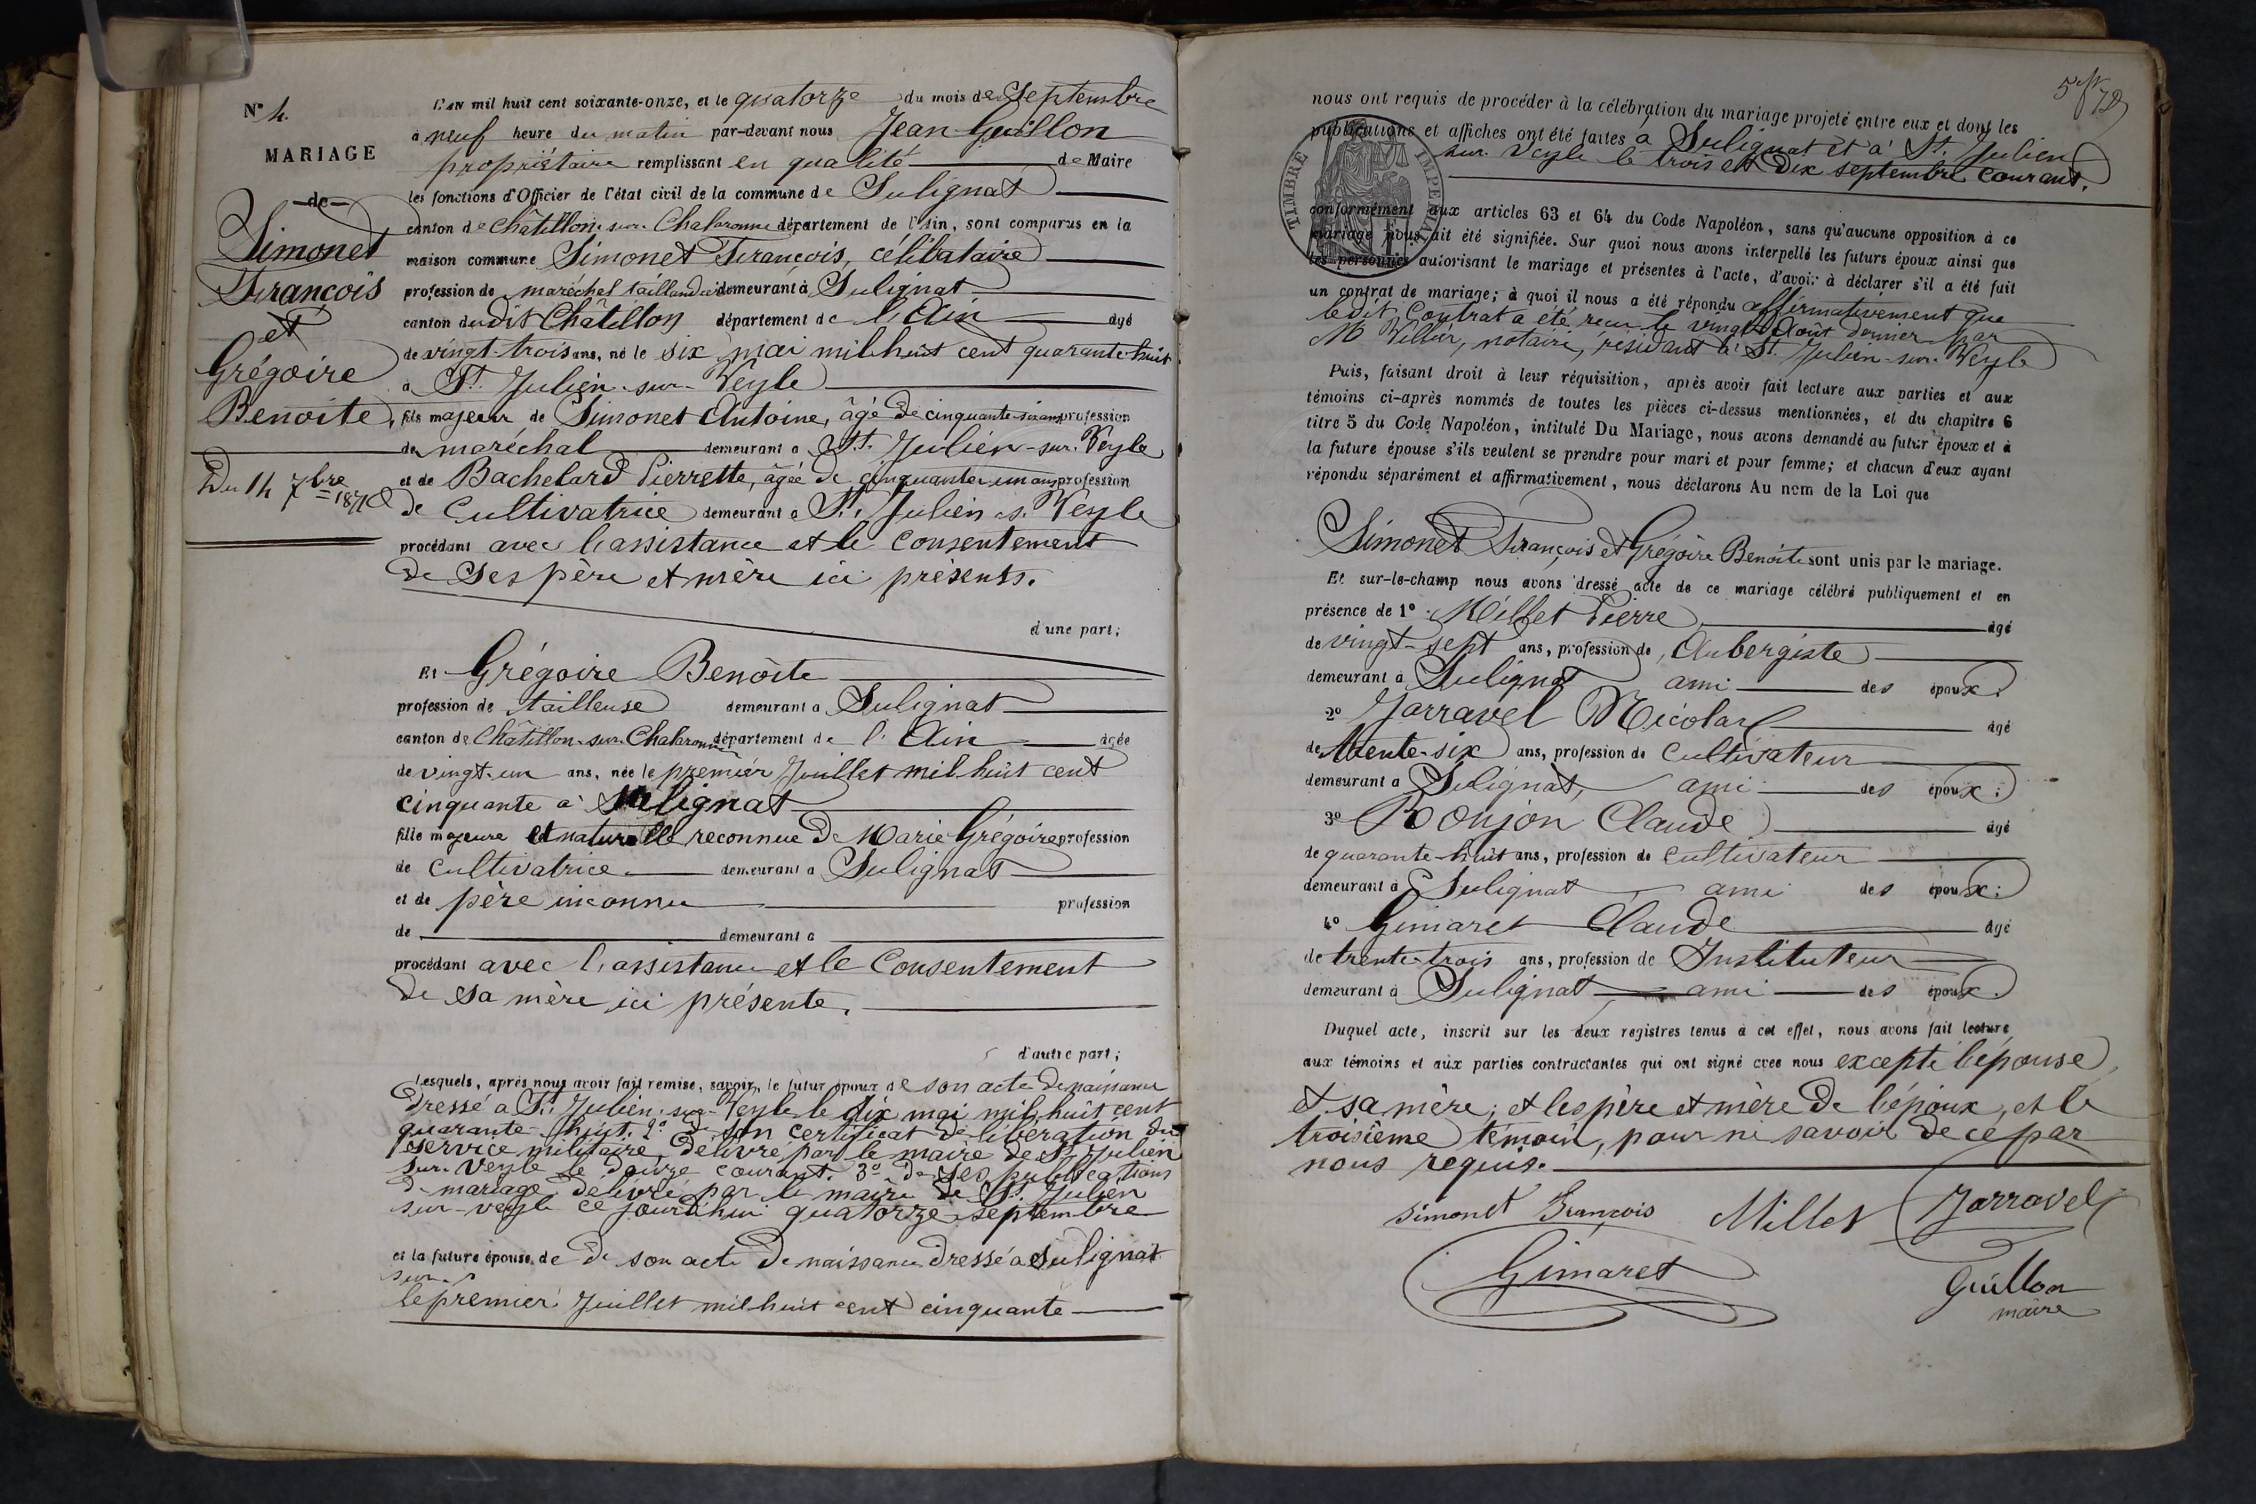 N° 4.
MARIAGE
de
Simonet
François
et
Grégoire
Benoite
Du 14 7bre 1871
L'AN mil huit cent soixante-onze, et le quatorze du mois de Septembre
à neuf heure du matin par-devant nous Jean Guillon
propriétaire remplissant en qualité de Maire
les fonctions d'Officier de l'état civil de la commune de Sulignat
canton de Châtillon-sur-Chalaronne département de l'Ain, sont comparus en la
maison commune Simonet François, célibataire
profession de maréchal taillandier demeurant à Sulignat
canton dudit Châtillon département de l'Ain âgé
de vingt-trois ans, né le six mai mil huit cent quarante-huit
à St. Julien-sur-Veyle
fils majeur de Simonet Antoine, âgé de cinquante-six ans profession
de maréchal demeurant à St. Julien-sur-Veyle
et de Bachelard Pierrette, âgée de cinquante-un ans profession
de Cultivatrice demeurant à St. Julien s. Veyle
procédant avec l'assistance et le consentement
de ses père et mère ici présents.
d'une part;
Et Grégoire Benoîte
profession de tailleuse demeurant à Sulignat
canton de Châtillon-sur-Chalaronne département de l'Ain âgée
de vingt-un ans, née le premier Juillet mil huit cent
cinquante à Sulignat
fille majeure et naturelle reconnue de Marie Grégoire profession
de cultivatrice demeurant à Sulignat
et de père inconnu profession
de demeurant à
procédant avec l'assistance et le Consentement
de sa mère ici présente.
d'autre part;
Lesquels, après nous avoir fait remise, savoir, le futur époux de son acte de naissance
dressé à St. Julien-sur-Veyle le dix mai mil huit cent
quarante-huit. 2° de son certificat de libération du
service militaire, délivré par le maire de St. Julien
sur-Veyle le douze courant. 3° de ses publications
de mariage délivré par le maire de St. Julien
sur-veyle ce jourd'hui quatorze septembre
et la future épouse, de de son acte de naissance dressé à Sulignat
sur
le premier Juillet mil huit cent cinquante
nous ont requis de procéder à la célébration du mariage projeté entre eux et dont les
publications et affiches ont été faites à Sulignat et à St. Julien
sur Veyle le trois et dix septembre courant.
TIMBRE IMPERIAL
conformément aux articles 63 et 64 du Code Napoléon, sans qu'aucune opposition à ce
mariage nous ait été signifiée. Sur quoi nous avons interpellé les futurs époux ainsi que
les personnes autorisant le mariage et présentes à l'acte, d'avoir à déclarer s'il a été fait
un contrat de mariage; à quoi il nous a été répondu affirmativement que
ledit Contrat a été reçu le vingt Août dernier par
M notaire, résidant à St. Julien-sur-Veyle
Puis, faisant droit à leur réquisition, après avoir fait lecture aux parties et aux
témoins ci-après nommés de toutes les pièces ci-dessus mentionnées, et du chapitre 6
titre 5 du Code Napoléon, intitulé Du Mariage, nous avons demandé au futur époux et à
la future épouse s'ils veulent se prendre pour mari et pour femme; et chacun d'eux ayant
répondu séparément et affirmativement, nous déclarons Au nom de la Loi que
Simonet François et Grégoire Benoîte sont unis par le mariage.
Et sur-le-champ nous avons dressé acte de ce mariage célébré publiquement et en
présence de 1° Millet Pierre âgé
de vingt-sept ans, profession de Aubergiste
demeurant à Sulignat ami des époux.
2° Jarravel Nicolas âgé
de trente-six ans, profession de Cultivateur
demeurant à Sulignat, ami des époux;
3° Bonjon Claude âgé
de quarante-huit ans, profession de cultivateur
demeurant à Sulignat ami des époux;
4° Gimaret Claude âgé
de trente-trois ans, profession de Instituteur
demeurant à Sulignat ami des époux.
Duquel acte, inscrit sur les deux registres tenus à cet effet, nous avons fait lecture
aux témoins et aux parties contractantes qui ont signé avec nous excepté l'épouse
et sa mère, et les père et mère de l'époux, et le
troisième témoin, pour ne savoir de ce par
nous requis.
Simonet François Millet Jarravel
Gimaret Guillon
maire